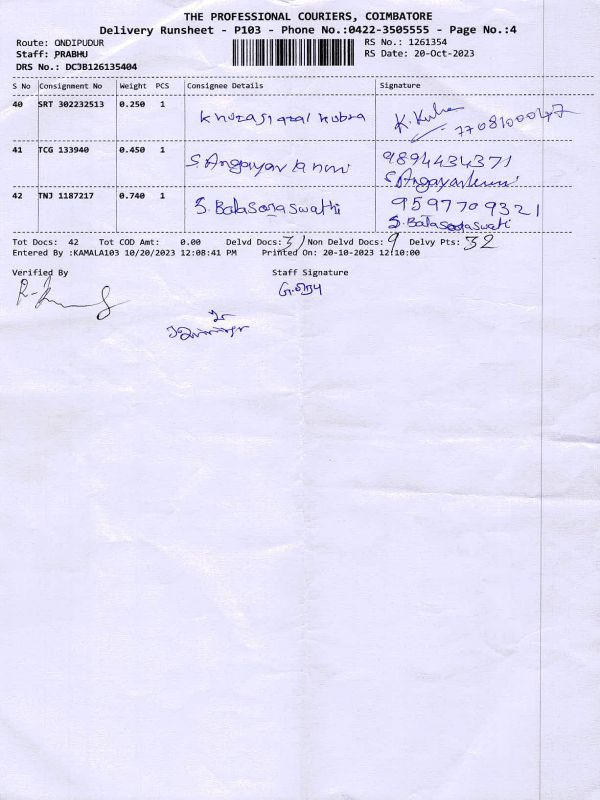 THE PROFESSIONAL COURIERS, COIMBATORE
Delivery Runsheet - P103 - Phone No.:0422-3505555 - Page No.:4
Route: ONDIPUDUR
RS No.: 1261354
Staff: PRABHU
RS Date: 20-Oct-2023
DRS No.: DCJB126135404
S No Consignment No Weight PCS Consignee Details Signature
40 SRT 302232513 0.250 1
K. 7708100047
41 TCG 133940 0.450 1 S. 9894434371
S.
42 TNJ 1187217 0.740 1 S. Balasaraswathi 9597709321
S. Balasaraswati
Tot Docs: 42 Tot COD Amt: 0.00 Delvd Docs: 31 Non Delvd Docs: 9 Delvy Pts: 32
Entered By :KAMALA103 10/20/2023 12:08:41 PM Printed On: 20-10-2023 12:10:00
Verified By Staff Signature